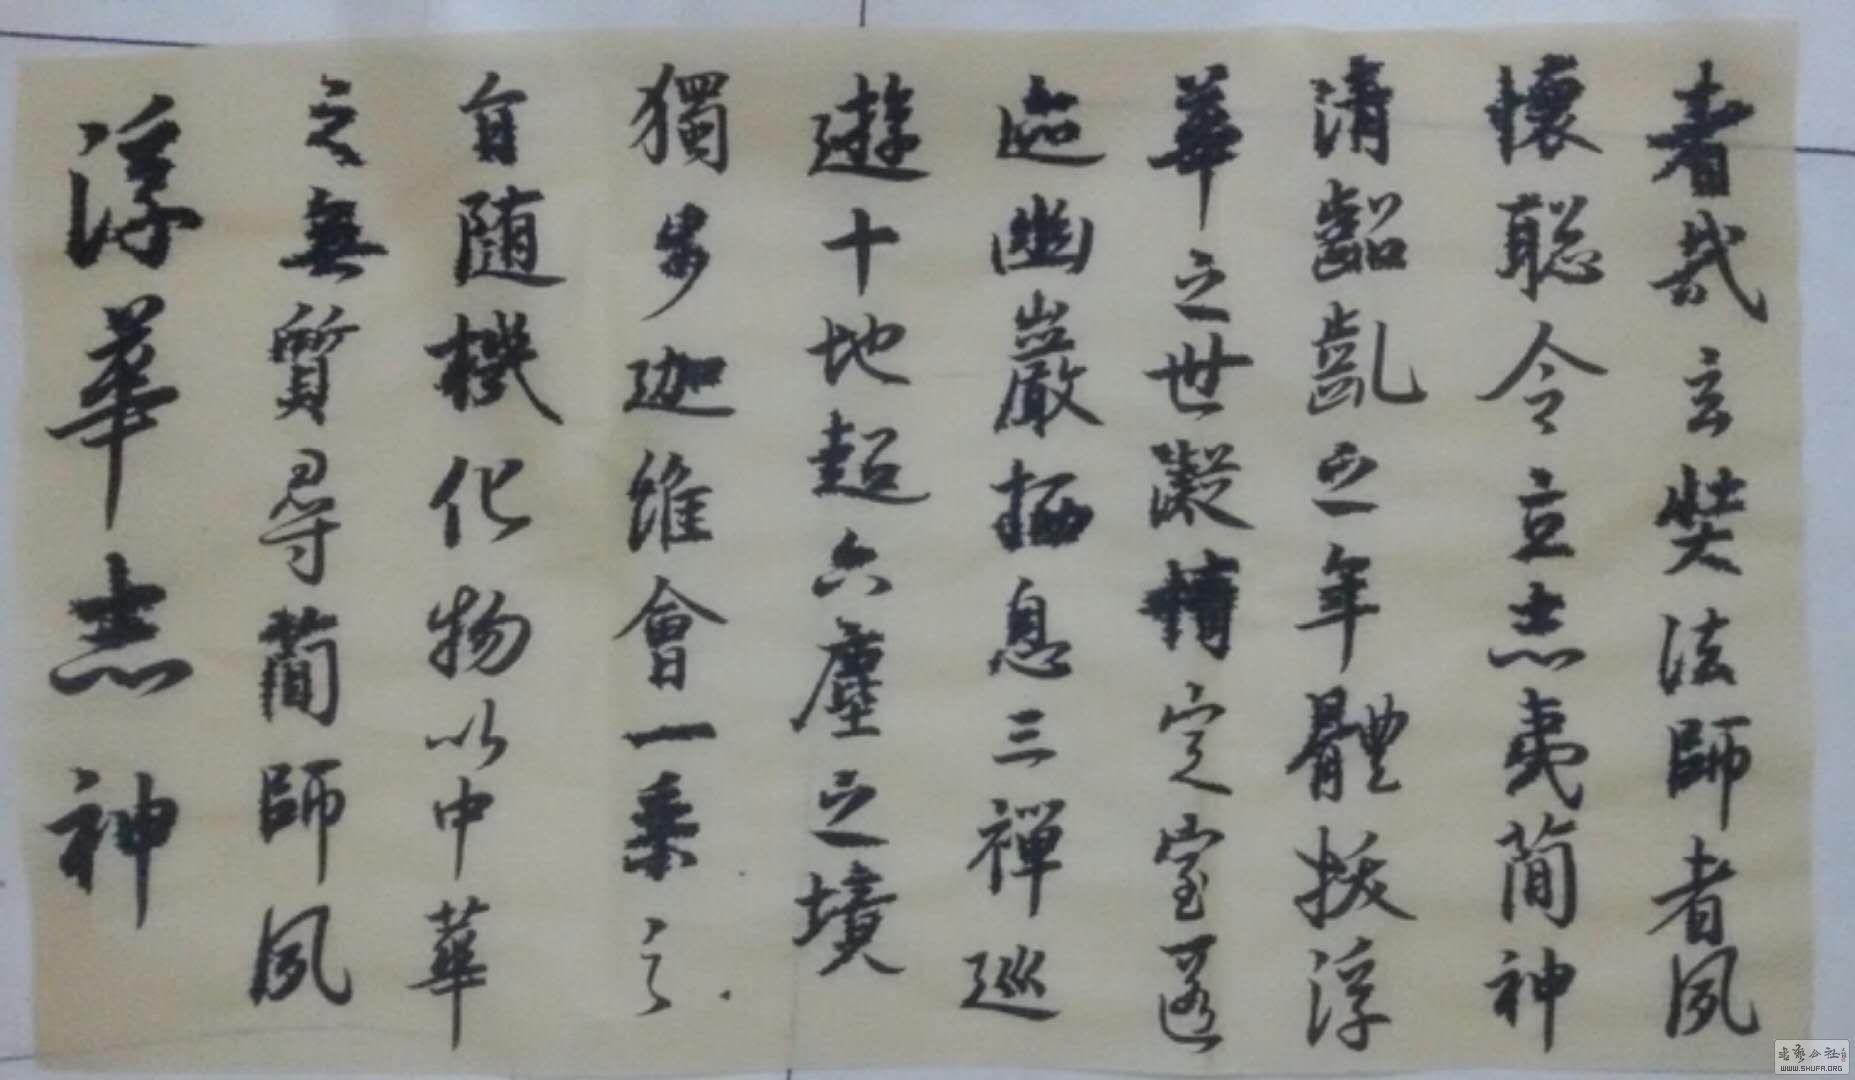 者哉玄奘法師者夙
懷聡令立志夷簡神
清齠齔之年體拔浮
華之世凝情定室匿
迹幽巖栖息三禪巡
遊十地超六塵之境
獨步迦維會一乘之
旨随機化物以中華
之無質尋蕳師夙
浮華志神
WWW.SHUFA.ORG